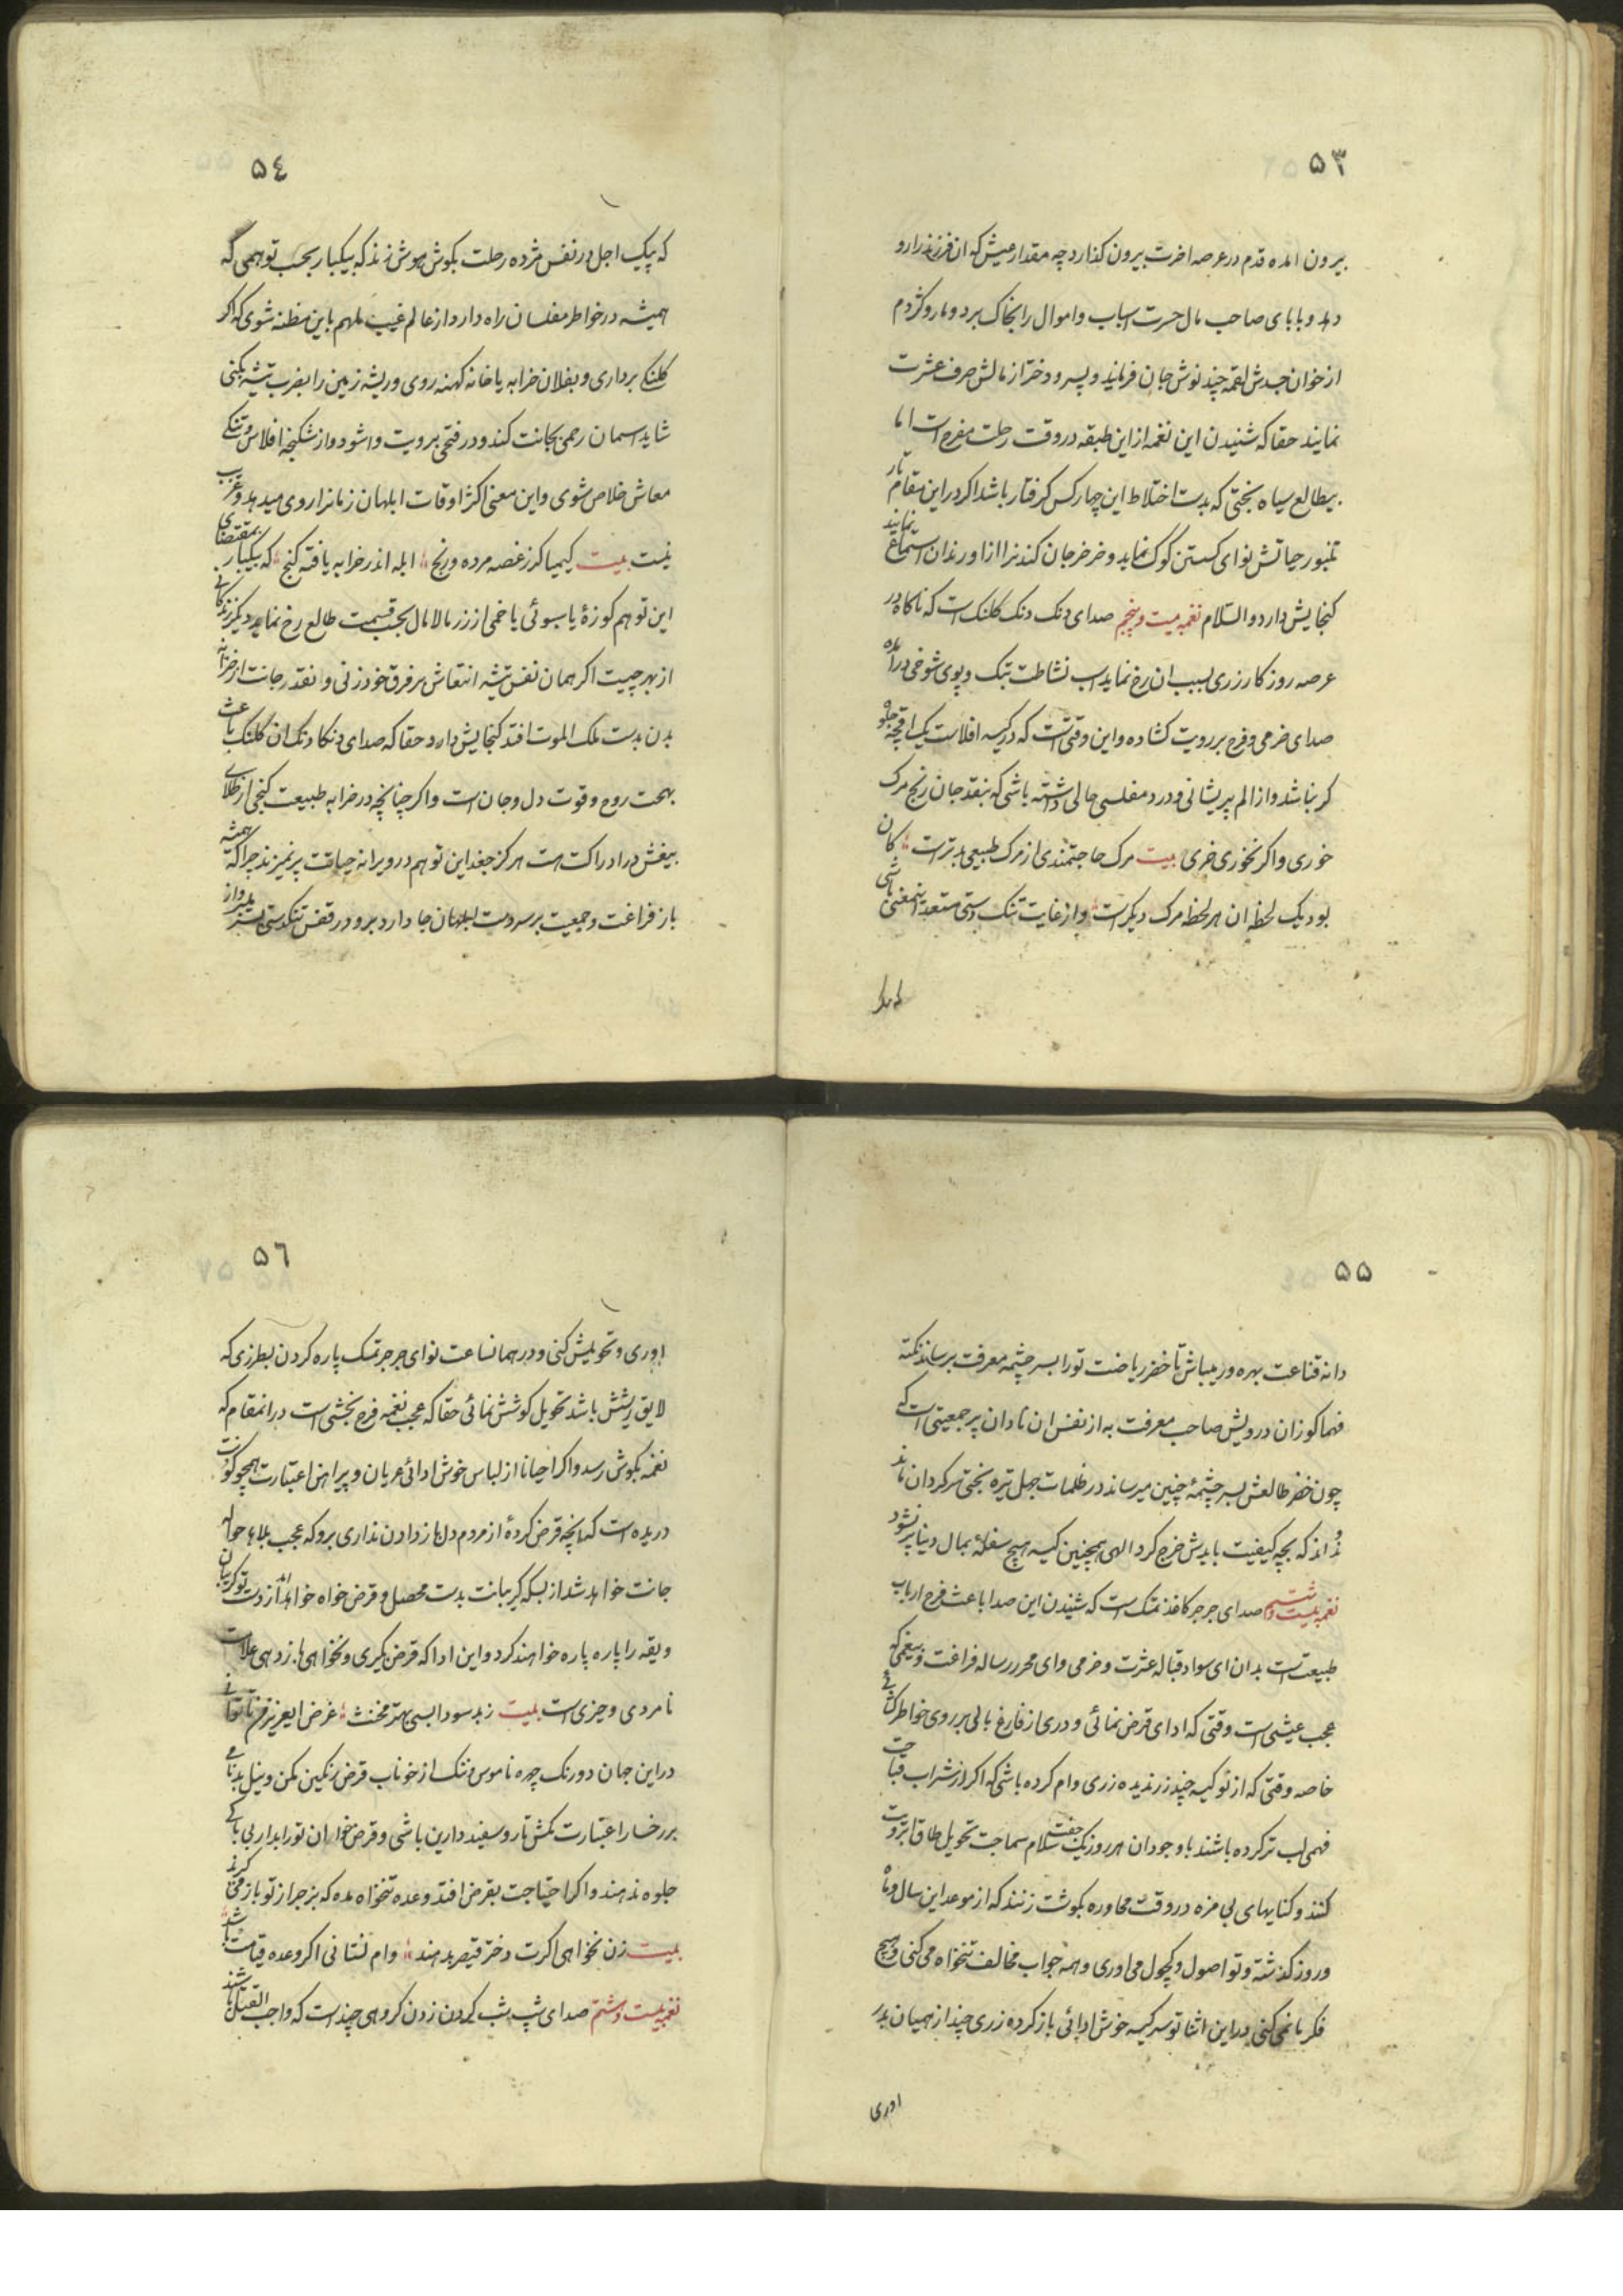 ۵۳
بیرون امده قدم در عرصه اخرت بیرون کذارد چه مقدار عیش که ان فرزند را رو
دهد و بابای صاحب مال حسرت اسباب و اموال را بخاک برد و مار و کژدم
از خوان جسدش لقمه چند نوش جان فرمایند و پسر و دختر از مالش صرف عشرت
نمایند حقا که شنیدن این نغمه از این طبقه در وقت رحلت مفرح است اما
بیطالع سیاه بختی که بدست اختلاط این چهار کس کرفتار باشد اکر در این مقام تار
تنبور حیاتش نوای کسستن کوک نماید و خرخر جان کندنرا از او رندان استماع نمایند
کنجایش دارد والسلام نغمه بیست و پنجم صدای دنک دنک کلنک است که ناکاه در
عرصه روزکار زری بسبب ان رخ نماید اسب نشاطت بتک و پوی شوخی درآمده
صدای خرمی و فرح بر رویت کشاده و این وقتی است که در کیسه افلاست یک اقچه جلوه
کر نباشد و از الم پریشانی و درد مفلسی حالی داشته باشی که بنقد جان رنج مرک
خوری و اکر نخوری خری بیت مرک حاجتمندی از مرک طبیعی بدتر است کان
بود یک لحظه ان هر لحظه مرک دیکر است و از غایت تنک دستی مستعد اینمعنی باشی
که پیک
۵٤
که پیک اجل در نفس مژده رحلت بکوش هوش زند که بیکبار بحسب توهمی که
همیشه در خواطر مفلسان راه دارد از عالم غیب ملهم باین مظنه شوی که اکر
کلنک برداری و بفلان خرابه یا خانه کهنه روی و ریشه زمین را بضرب تیشه بکنی
شاید اسمان رحمی بجانت کند و در فتحی برویت وا شود و از شکنجه افلاس و تنکی
معاش خلاص شوی و این معنی اکثر اوقات ابلهان زمانرا روی میدهد و غریب
نیست بیت کیمیاکر ز غصه مرده و رنج ابله اندر خرابه یافته کنج که بیکبار بمقتضای
این توهم کوزهٔ یا سبوئی یا خمی از زر مالامال بحسب قسمت طالع رخ نماید دیکر زندکانی
از بهر چیست اکر همان نفس تیشه انتعاش بر فرق خود زنی و انقدر جانت از خزانه
بدن بدست ملک الموت افتد کنجایش دارد حقا که صدای دنکا دنک ان کلنک باعث
بهجت روح و قوت دل و جان است و اکر چنانچه در خرابه طبیعت کنجی از طلای
بیغش در ادراکت هست هرکز جغد این توهم در ویرانه حیاتت پر نمیزند چرا که همیشه
باز فراغت و جمعیت بر سر دست ابلهان جا دارد برو در قفس تنکدستی بسر
۵۵
دانه قناعت بهره ور میباش تا خضر ریاضت تو را بسر چشمه معرفت برساند نکته
فهما کوزان درویش صاحب معرفت به از نفس ان نادان پر جمعیتی است که
چون خضر طالعش بسر چشمهٔ چنین میرساند در ظلمات جهل تیره بختی سرکردان ماند
و نداند که بچه کیفیت بایدش خرج کرد الهی همچنین کیسه هیچ سفلهٔ بمال دنیا پر نشود
نغمه بیست و ششم صدای جرجر کاغذ تمسک است که شنیدن این صدا باعث فرح ارباب
طبیعت است بدان ای سواد قباله عشرت و خرمی و ای محرر رساله فراغت و بیغمی که
عجب عیشی است وقتی که ادای قرض نمائی و دری از فارغ بالی بر روی خواطر کشائی
خاصه وقتی که از نو کیسه چند زر ندیده زری وام کرده باشی که اکر از شراب قباحت
فهمی لب تر کرده باشند با وجود ان هر روز یک جفت سلام سماجت تحویل طاق ابرویت
کنند و کنایهای بی مزه در وقت محاوره بکوشت زنند که از موعد این سال و ماه
و روز کذشته و تو اصول و کچول می اوری و همه جواب مخالف تنخواه می کنی و هیچ
فکر ما نمی کنی در این اثنا تو سر کیسه خوش ادائی باز کرده زری چند از همیان بدر
اوری
۵٦
اوری و تحویلش کنی و در همانساعت نوای جرجر تمسک پاره کردن بطرزی که
لایق ریشش باشد تحویل کوشش نمائی حقا که عجب نغمه فرح بخشی است در انمقام که
نغمه بکوش رسد و اکر احیانا از لباس خوش ادائی عریان و پیراهن اعتبارت همچو
دریده است که انچه قرض کردهٔ از مردم دل باز دادن نداری برو که عجب بلاها حواله
جانت خواهد شد از بسکه کریبانت بدست محصل و قرض خواه خواهد امد از دست تو کریبان
و یقه را پاره پاره خواهند کرد و این ادا که قرض بکیری و نخواهی باز دهی علامت
نامردی و حیزی است بیت ز بد سودا بسی بهتر مخنث غرض ایعزیز من تا توانی
در این جهان دو رنک چهره ناموس و ننک از خوناب قرض رنکین مکن و نیل بدنامی
بر رخسار اعتبارت مکش تا رو سفید دارین باشی و قرض خواهان تو را بدار بی باکی
جلوه ندهند و اکر احتیاجت بقرض افتد وعده تنخواه مده که بزجر از تو باز می کیرند
بیت زن نخواهی اکرت دختر قیصر بدهند وام نستانی اکر وعده قیامت باشد
نغمه بیست و هشتم صدای شپ شپ کردن زدن کروهی چند است که واجب القتل باشند